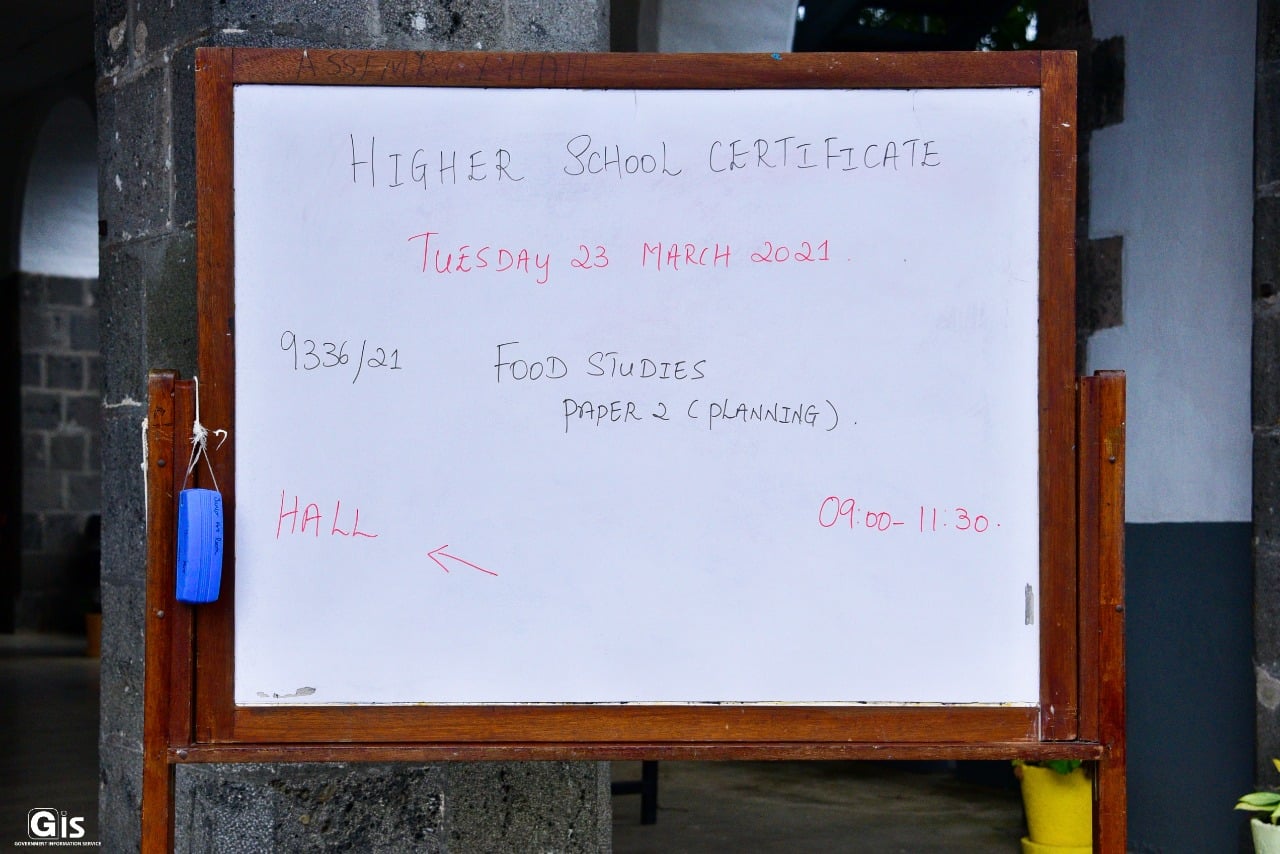 ASSEMBLY HALL
HIGHER SCHOOL CERTIFICATE
TUESDAY 23 MARCH 2021.
9336/21 FOOD STUDIES
PAPER 2 (PLANNING).
HALL 09:00-11:30.
Junior Art Room
Gis
GOVERNMENT INFORMATION SERVICE